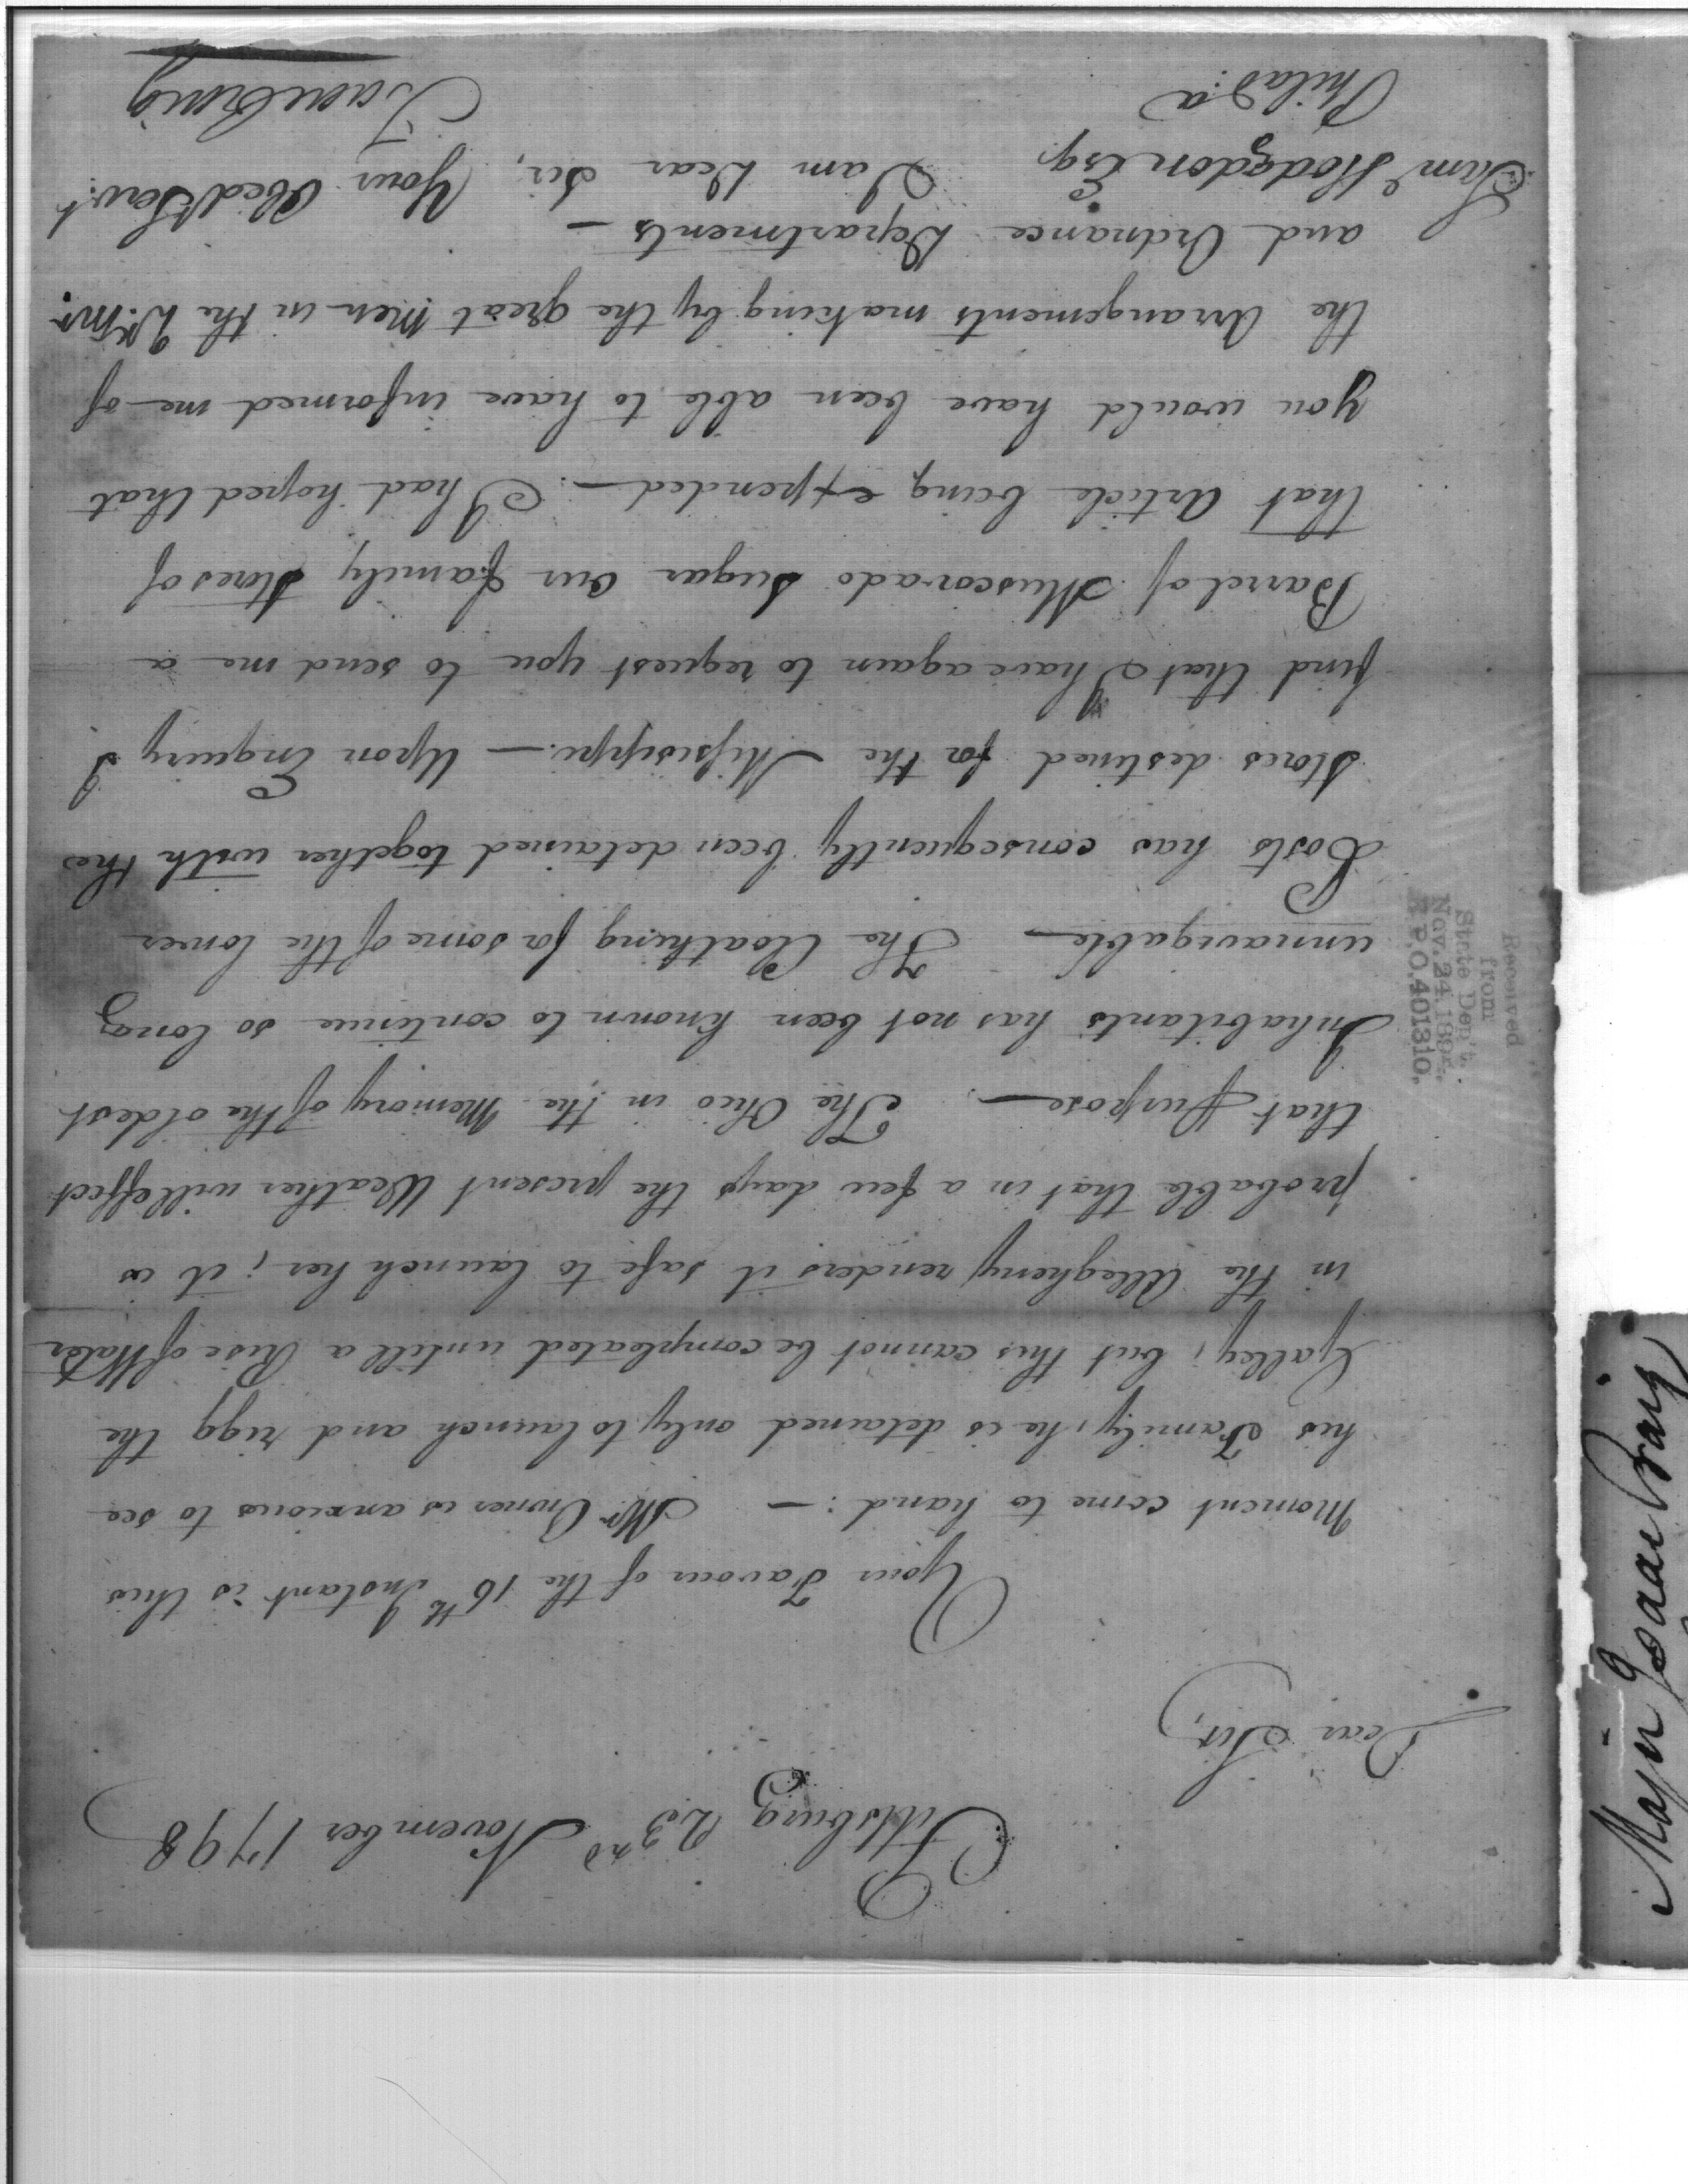 Pittsburg 23rd November 1798
Dear Sir,
Your Favour of the 16th Instant is this
Moment come to hand: — Mr Owner is anxious to see
his Family, he is detained only to launch and rigg the
Galley, but this cannot be compleated untill a Rise of Water
in the Allegheny renders it safe to launch her; it is
probable that in a few days the present Weather will effect
that purpose — The Ohio in the Memory of the oldest
Inhabitants has not been known to continue so long
unnavigable — The Cloathing for some of the lower
Posts has consequently been detained together with the
Stores destined for the Missisippi. — Upon Enquiry I
find that I have again to request you to send me a
Barrel of Muscovado Sugar our family Stores of
that Article being expended — I had hoped that
you would have been able to have informed me of
the Arrangements making by the great Men in the Qr. Mr.
and Ordnance Departments —
I am Dear Sir, Your Obed Servt
Isaac Craig
Saml Hodgdon Esq.
Philada
Received
from
State Dep't.
Nov. 24, 189
R.P.O. 401310.
Major Isaac Craig